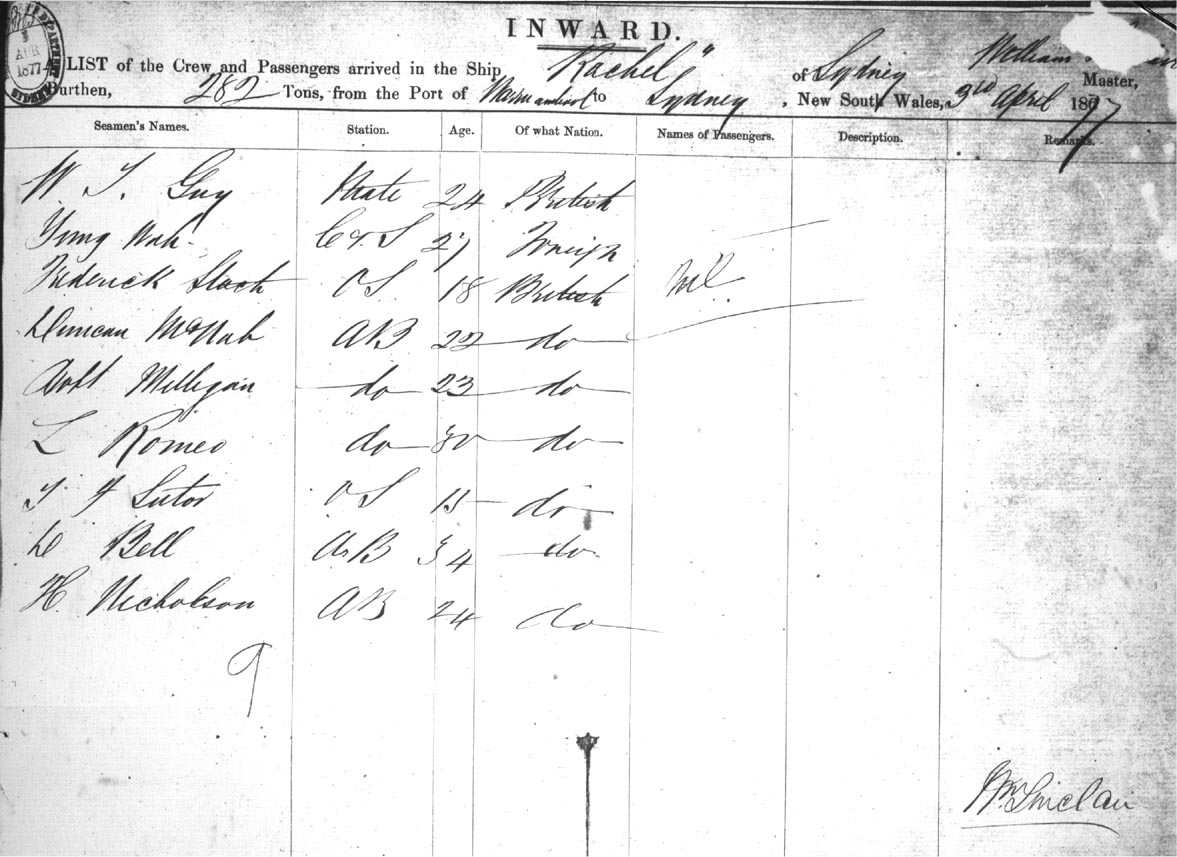 INWARD.
LIST of the Crew and Passengers arrived in the Ship "Rachel" of Sydney William Master,
Burthen, 282 Tons, from the Port of to Sydney, New South Wales, 3rd April 1877
Seamen's Names. Station. Age. Of what Nation. Names of Passengers. Description. Remarks.
W T. Guy Mate 24 British
Yung Wah C & S 27 Foreign
Frederick Slach O S 18 British Nil
Duncan McNab AB 22 do
Robt Milligan do 23 do
L Romeo do 30 do
T F Sutor O S 15 do
D Bell AB 34 do
H. Nicholson AB 24 do
9
Wm Sinclair
APR
1877
SYDNEY